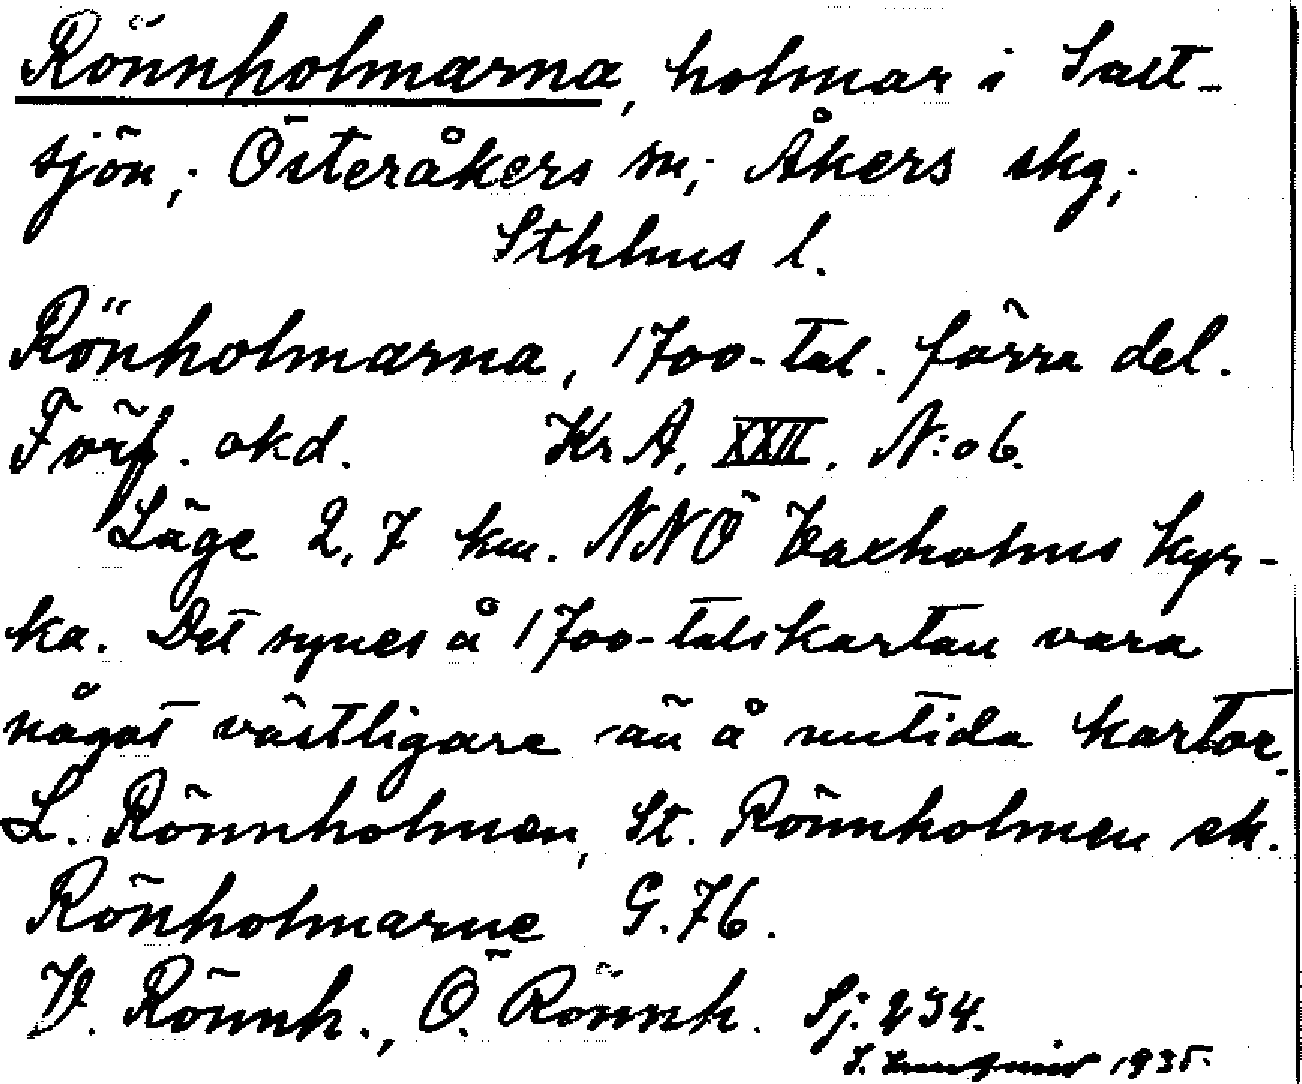 Rönnholmarna, holmar i Salt-
sjön, Österåkers sn, Åkers skg,
Sthlms l.
Rönholmarna, 1700-tal. förra del.
Förf. okd. Kr A, XXII, N:o 6.
Läge 2,7 km. NNÖ Vaxholms kyr-
ka. Det synes å 1700-talskartan vara
något västligare än å nutida kartor.
L. Rönnholmen, St. Rönnholmen ek.
Rönholmarne G.76.
V. Rönnh., Ö. Rönnh. Sj. 234.
1935.